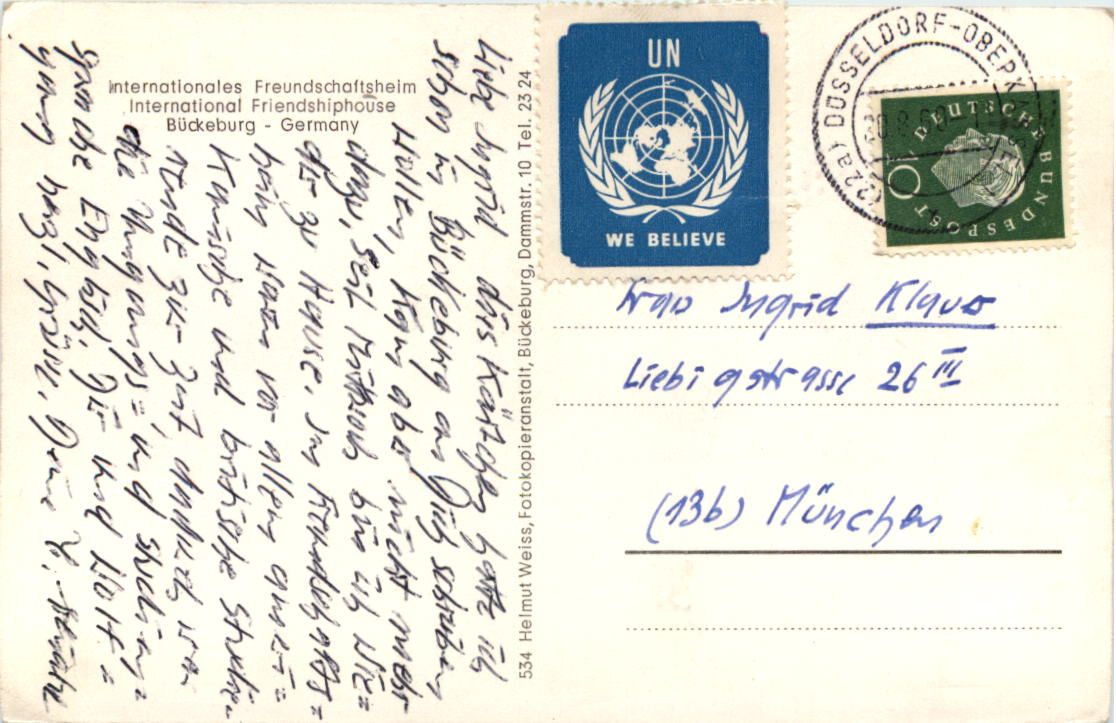 Internationales Freundschaftsheim
International Friendshiphouse
Bückeburg - Germany
Liebe Ingrid, dies Kärtchen hatte ich
schon in Bückeburg an Dich schreiben
wollen, kam aber nicht mehr
dazu. Seit Mittwoch bin ich wie=
der zu Hause. Im Freundschafts=
heim waren vor allem ameri=
kanische und britische Studie-
rende zur Zeit
die Umgangs= und
sprache Englisch. Dir und Wolf=
gang herzl. Grüße, Deine
534 Helmut Weiss, Fotokopieranstalt, Bückeburg, Dammstr. 10 Tel. 23 24
UN
WE BELIEVE
(22a) DÜSSELDORF-OBERK
DEUTSCHE BUNDESPOST
10
Frau Ingrid Klaus
Liebigstrasse 26 III
(13b) München